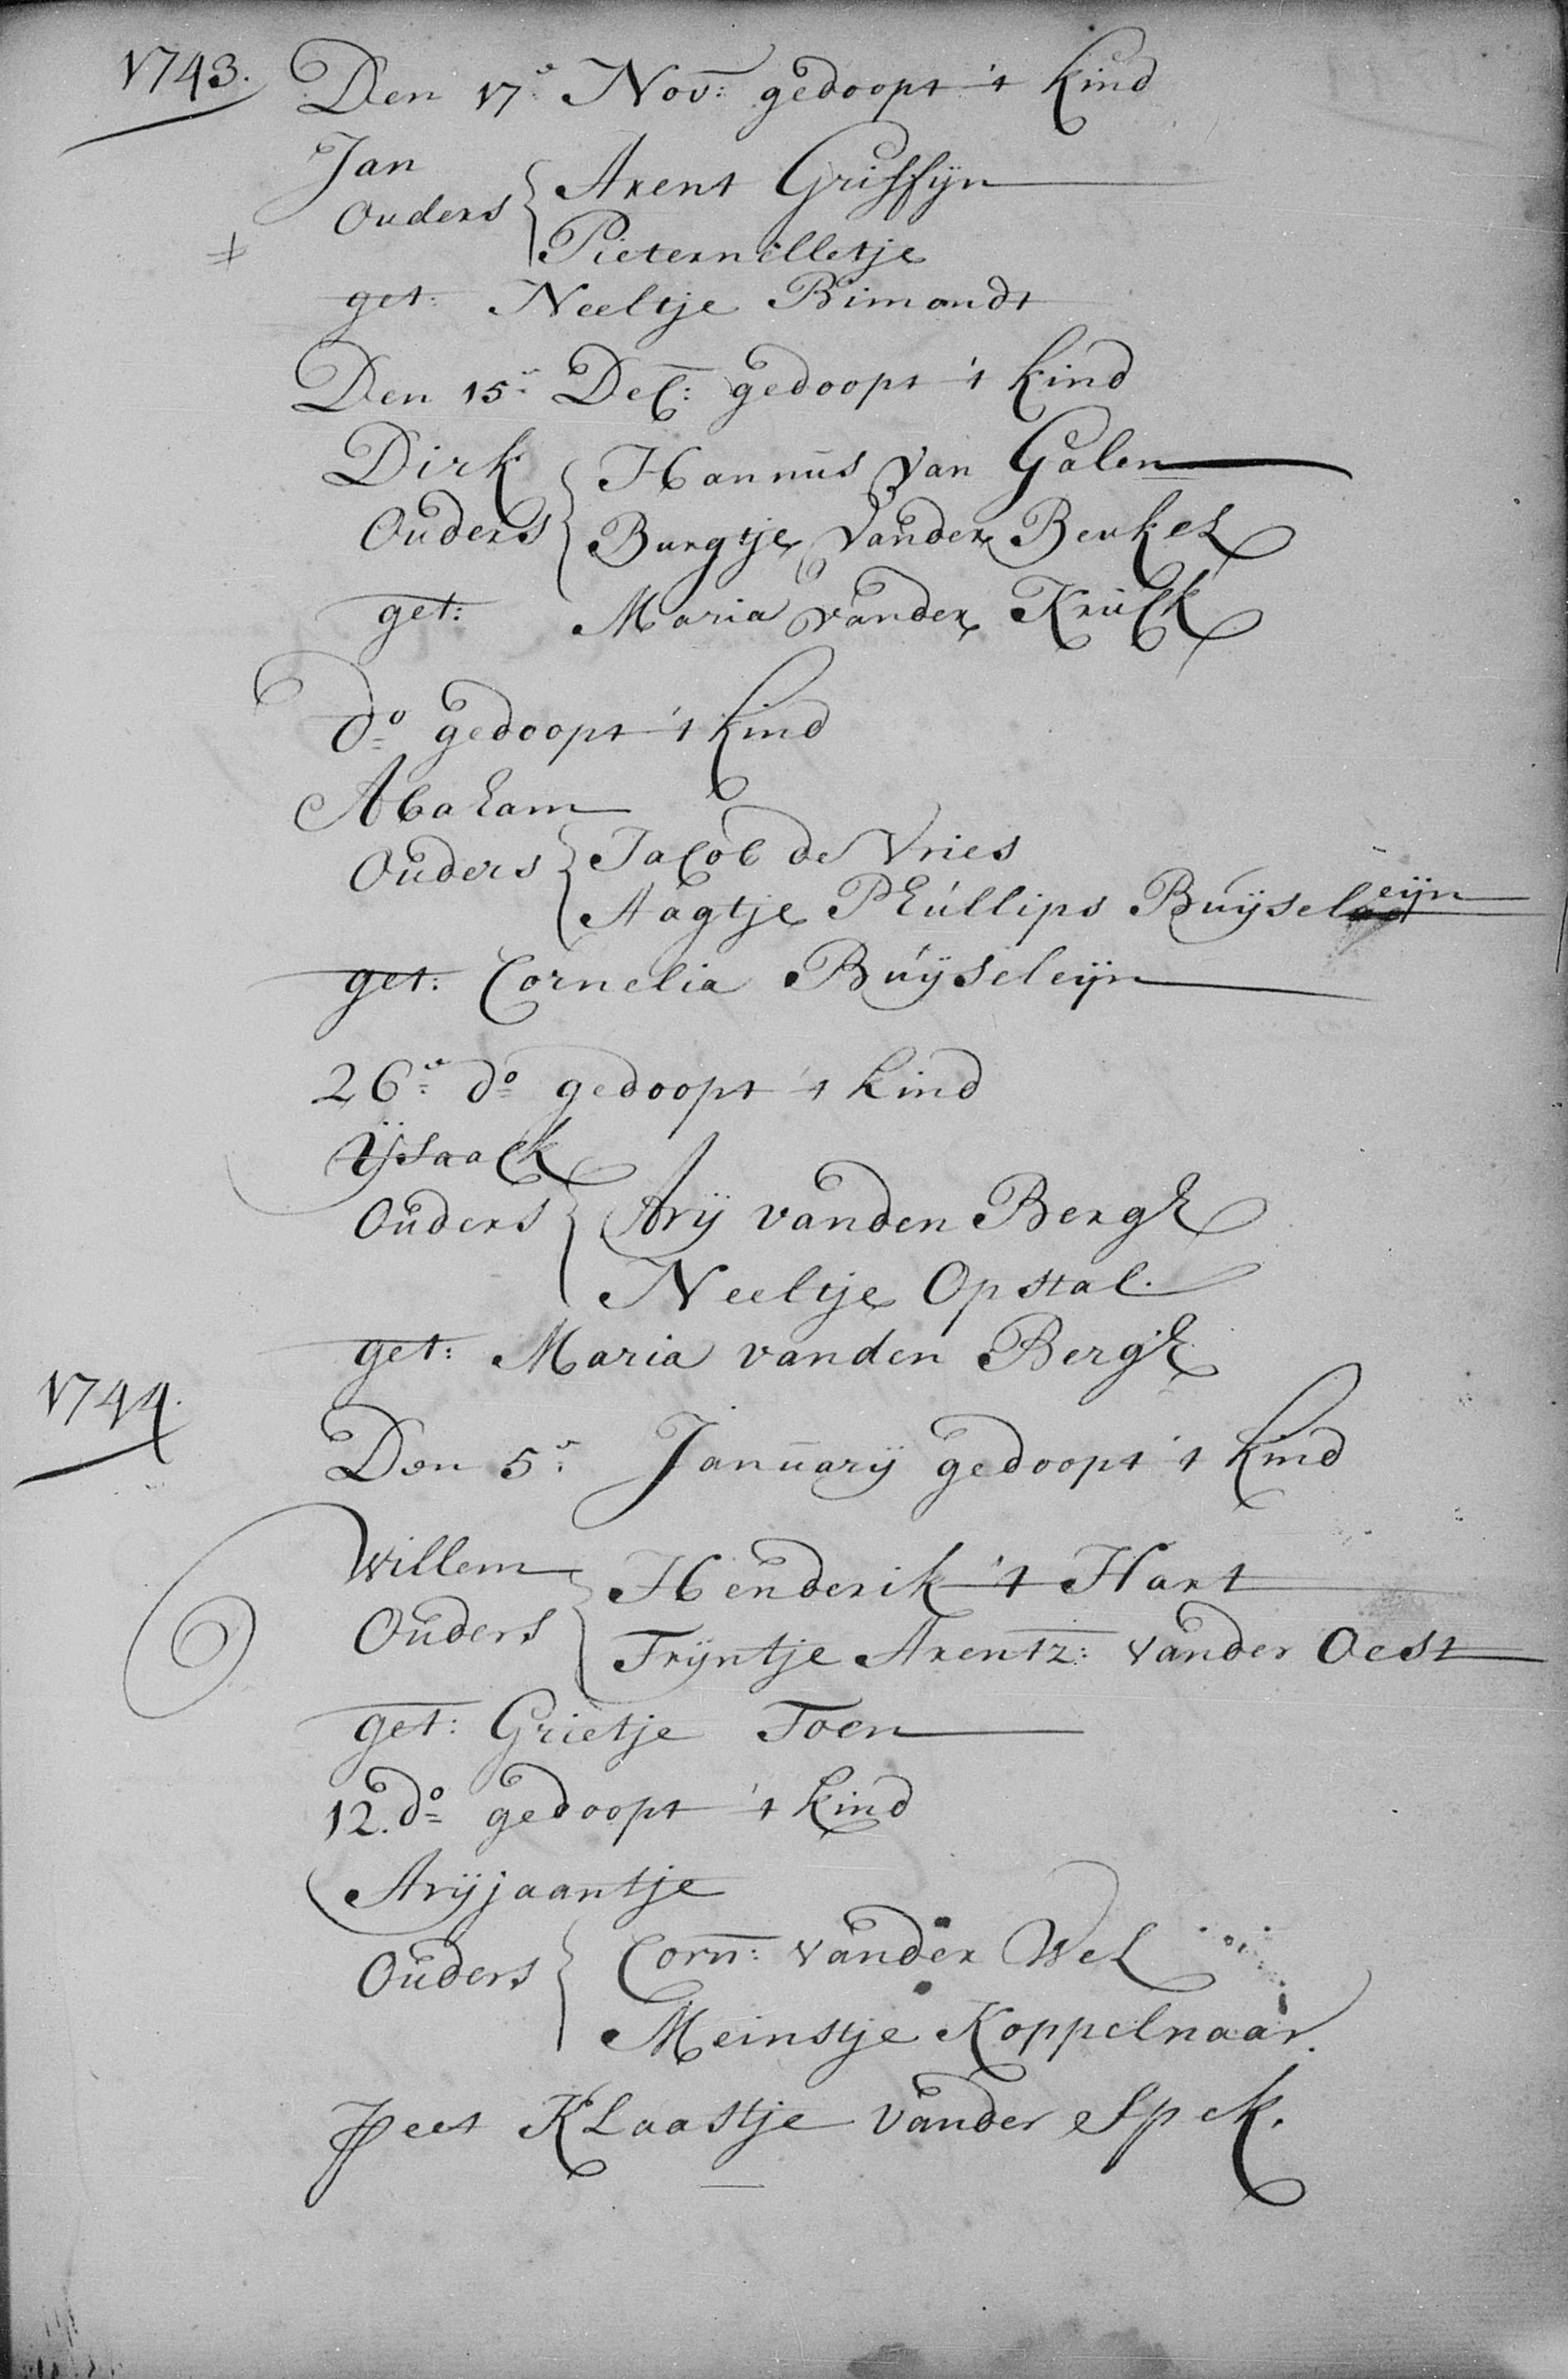 1743. Den 17e Nov: gedoopt 't kind
Jan
Ouders { Arent Griffijn
Pieternelletje
get: Neeltje Bimondt
Den 15e Dec: gedoopt 't kind
Dirk
Ouders { Hannus van Galen
Burgtje vander Beukel
get: Maria vander Kruck
do gedoopt 't kind
Abaham
Ouders { Jacob de Vries
Aagtje Phullips Buijseleijn
get: Cornelia Buijseleijn
26e do gedoopt 't kind
Ysaack
Ouders { Arij vanden Bergh
Neeltje Opstal.
get: Maria vanden Bergh
1744. Den 5e Januarij gedoopt 't kind
Willem
Ouders { Henderik 't Hart
Trijntje Arentz: vander Oest
get: Grietje Toen
12. do gedoopt 't kind
Arijjaantje
Ouders { Corn: vander Wel
Meinstje Koppelnaar.
Peet Klaastje vander Spek.